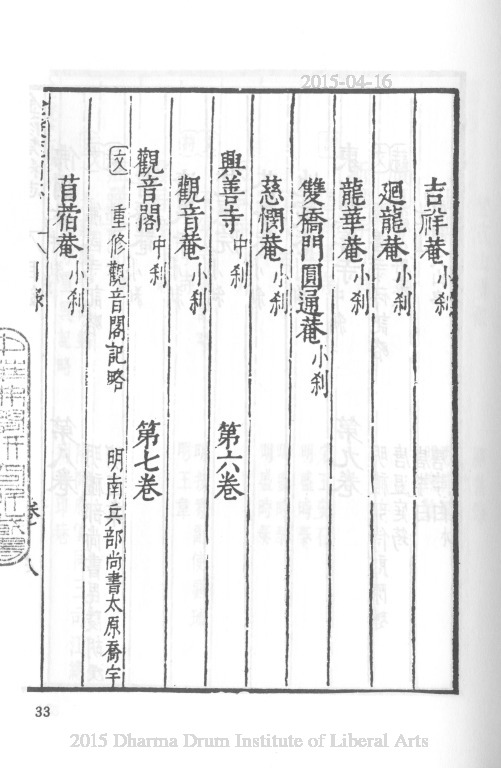 2015-04-16
吉祥菴小刹
廻龍菴小刹
龍華菴小刹
雙橋門圓通菴小刹
慈憫菴小刹
興善寺中刹 第六卷
觀音菴小刹
觀音閣中刹 第七卷
文 重修觀音閣記略 明南兵部尚書太原喬宇
苜蓿菴小刹
目錄
33
2015 Dharma Drum Institute of Liberal Arts